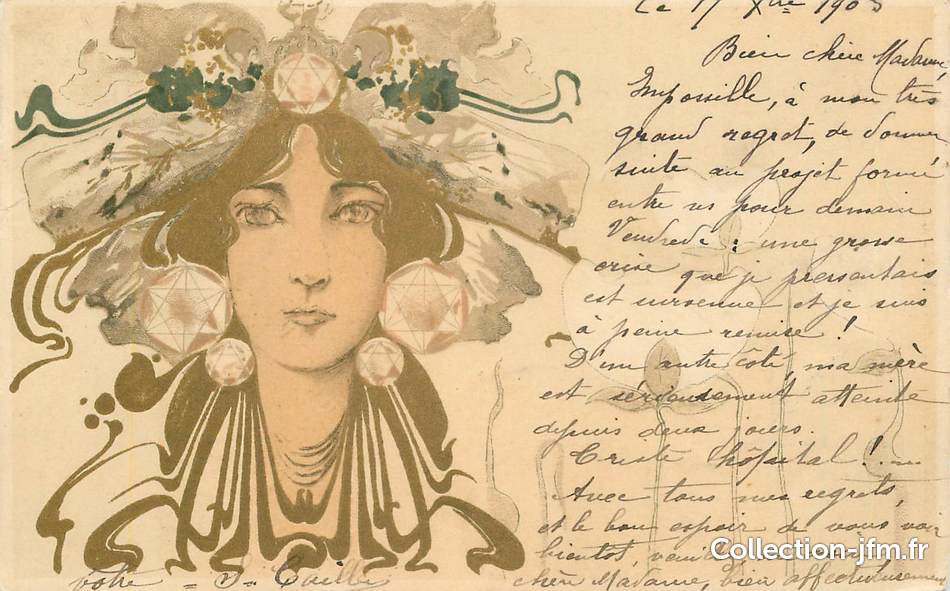 Le 17 Xbre 1903
Bien chère Madame,
Impossible, à mon très
grand regret, de donner
suite au projet formé
entre ns pour demain
Vendredi : une grosse
crise que je pressentais
est survenue et je suis
à peine remise !
D'un autre côté, ma mère
est sérieusement atteinte
depuis deux jours.
Triste hôpital !...
Avec tous mes regrets,
et le bon espoir de vous voir
bientôt,
chère Madame, bien affectueusement
votre
Collection-jfm.fr